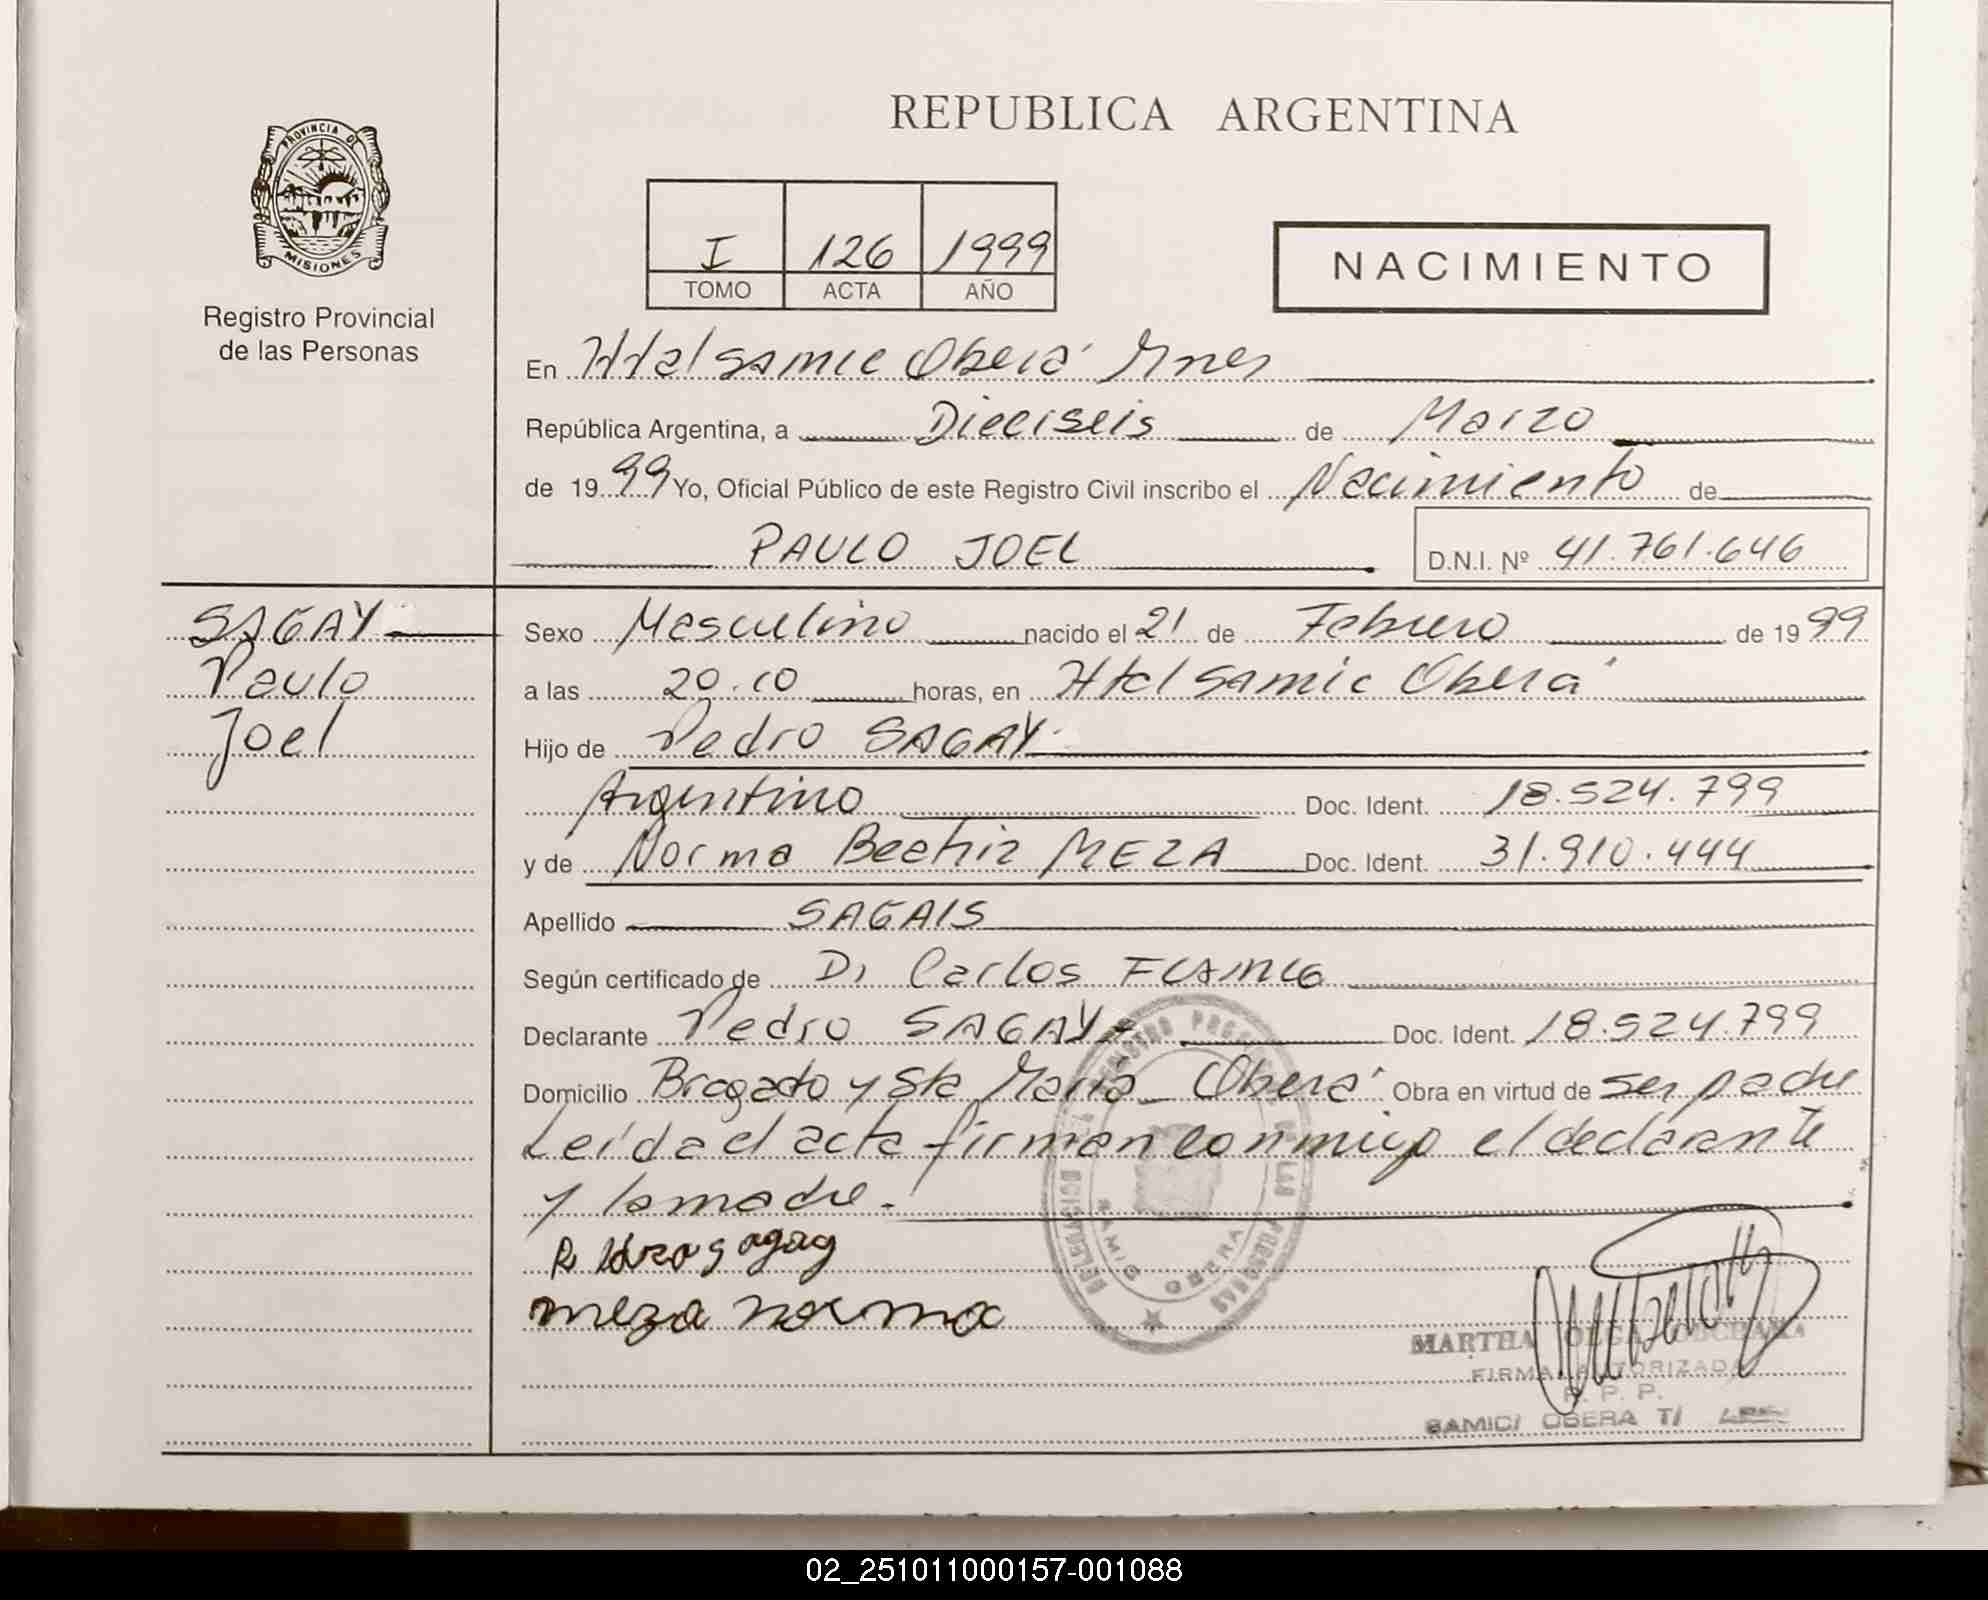 REPUBLICA ARGENTINA
PROVINCIA DE
MISIONES
Registro Provincial
de las Personas
I 126 1999
TOMO ACTA AÑO
NACIMIENTO
En Htal Samic Oberá Mnes
República Argentina, a Dieciseis de Marzo
de 1999 Yo, Oficial Público de este Registro Civil inscribo el Nacimiento de
PAULO JOEL D.N.I. Nº 41.761.646
SAGAY
Paulo
Joel
Sexo Masculino nacido el 21 de Febrero de 1999
a las 20.10 horas, en Htal Samic Oberá
Hijo de Pedro SAGAY
Argentino Doc. Ident. 18.524.799
y de Norma Beatriz MEZA Doc. Ident. 31.910.444
Apellido SAGAIS
Según certificado de Dr Carlos
Declarante Pedro SAGAY Doc. Ident. 18.524.799
Domicilio Bragado y Sta Maria - Oberá Obra en virtud de ser padre
Leída el acta firman conmigo el declarante
y la madre.-
sagay
meza norma
MARTHA OLGA
FIRMA AUTORIZADA
R. P. P.
SAMIC/ OBERA T/
SAMIC OBERA
02_251011000157-001088